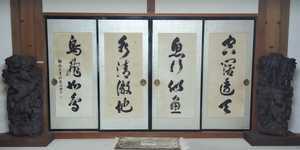 空闊透天
魚行似魚
水清徹地
鳥飛如鳥